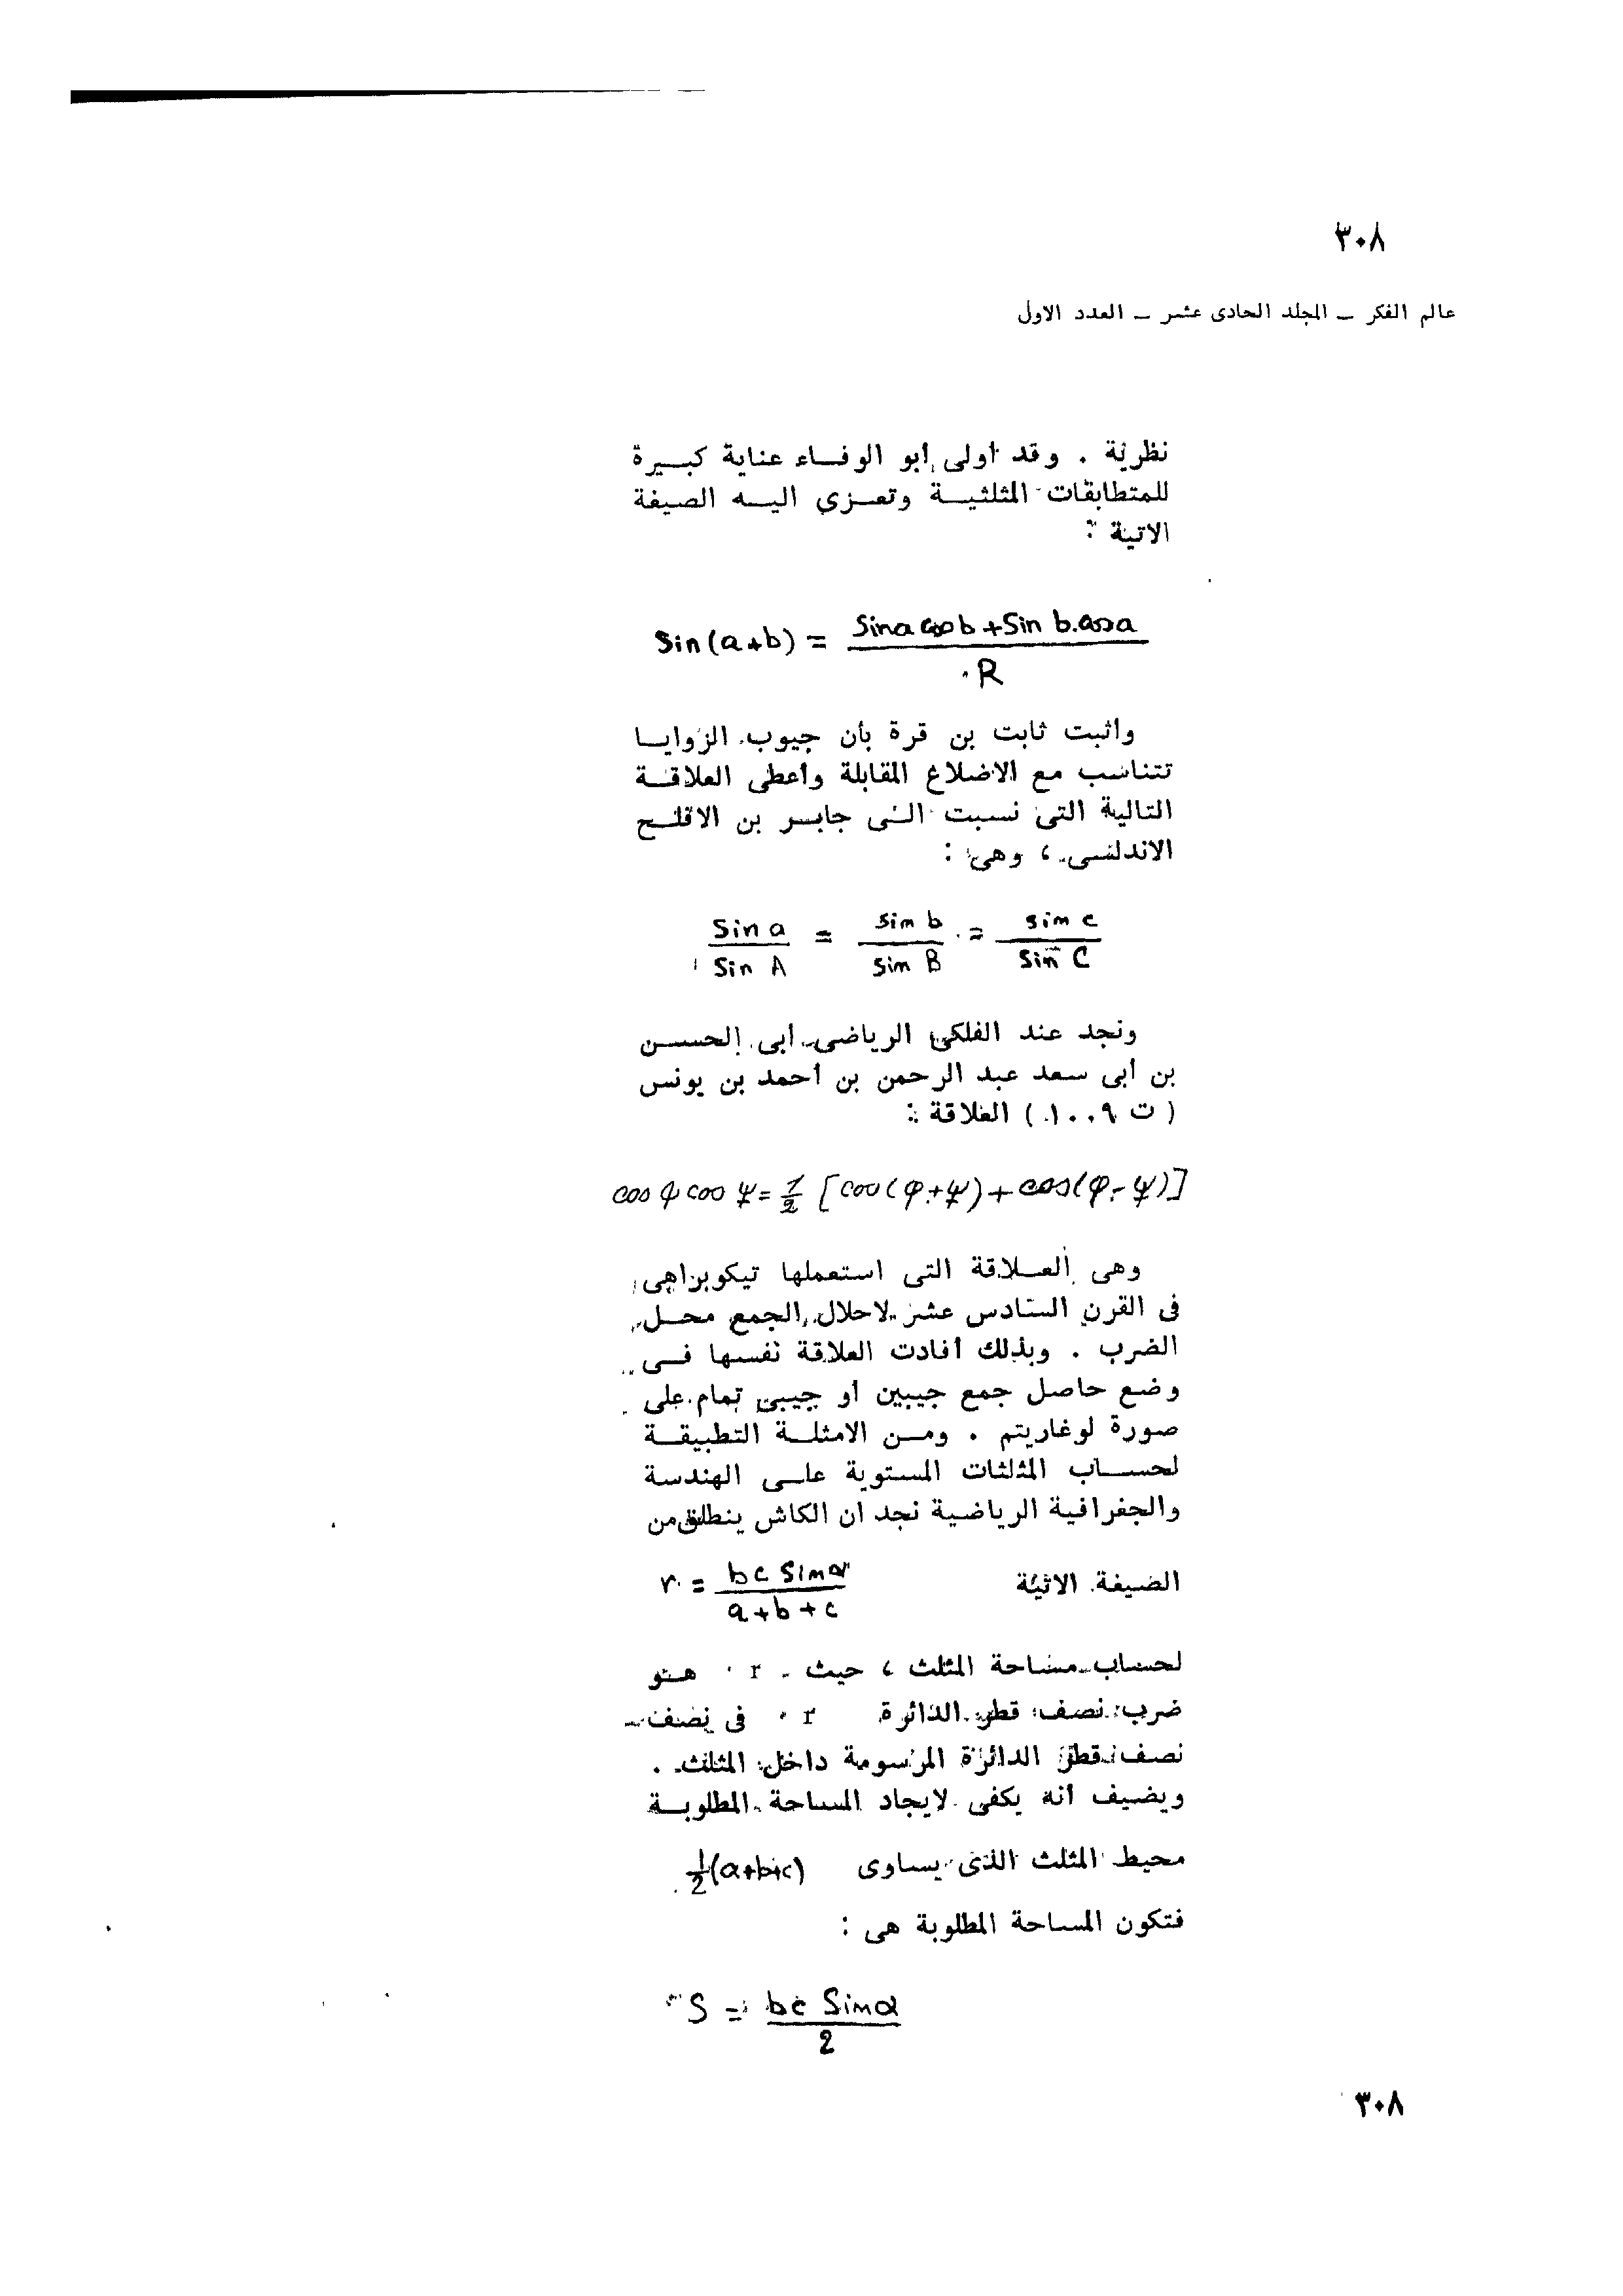 ٣٠٨
عالم الفكر – المجلد الحادى عشر – العدد الاول
نظرية . وقد أولى أبو الوفـاء عناية كبـيرة
للمتطابقات المثلثيـة وتعـزي اليـه الصيغة
الاتية :
Sin(a+b) = (Sin a cos b + Sin b . cos a) / R
واثبت ثابت بن قرة بأن جيوب الزوايـا
تتناسب مع الاضلاع المقابلة وأعطى العلاقـة
التالية التى نسبت الـى جابـر بن الاقلـح
الاندلسى ، وهى :
Sin a / Sin A = sin b / Sin B = sin c / Sin C
ونجد عند الفلكى الرياضى أبى الحسـن
بن أبى سعد عبد الرحمن بن أحمد بن يونس
( ت ١٠٠٩ ) العلاقة :
cos φ cos ψ = 1/2 [cos(φ+ψ) + cos(φ-ψ)]
وهى العـلاقة التى استعملها تيكوبراهى
فى القرن السادس عشر لاحلال الجمع محـل
الضرب . وبذلك أفادت العلاقة نفسها فـى
وضع حاصل جمع جيبين أو جيبى تمام على
صورة لوغاريتم . ومـن الامثلـة التطبيقـة
لحسـاب المثلثات المستوية علـى الهندسة
والجغرافية الرياضية نجد ان الكاش ينطلق من
الصيغة الاتية r = bc Sin α / (a+b+c)
لحساب مساحة المثلث ، حيث r هـو
ضرب نصف قطر الدائرة r فى نصف
نصف قطر الدائرة المرسومة داخل المثلث .
ويضيف أنه يكفى لايجاد المساحة المطلوبـة
محيط المثلث الذى يساوى 1/2(a+b+c)
فتكون المساحة المطلوبة هى :
S = bc Sin α / 2
٣٠٨